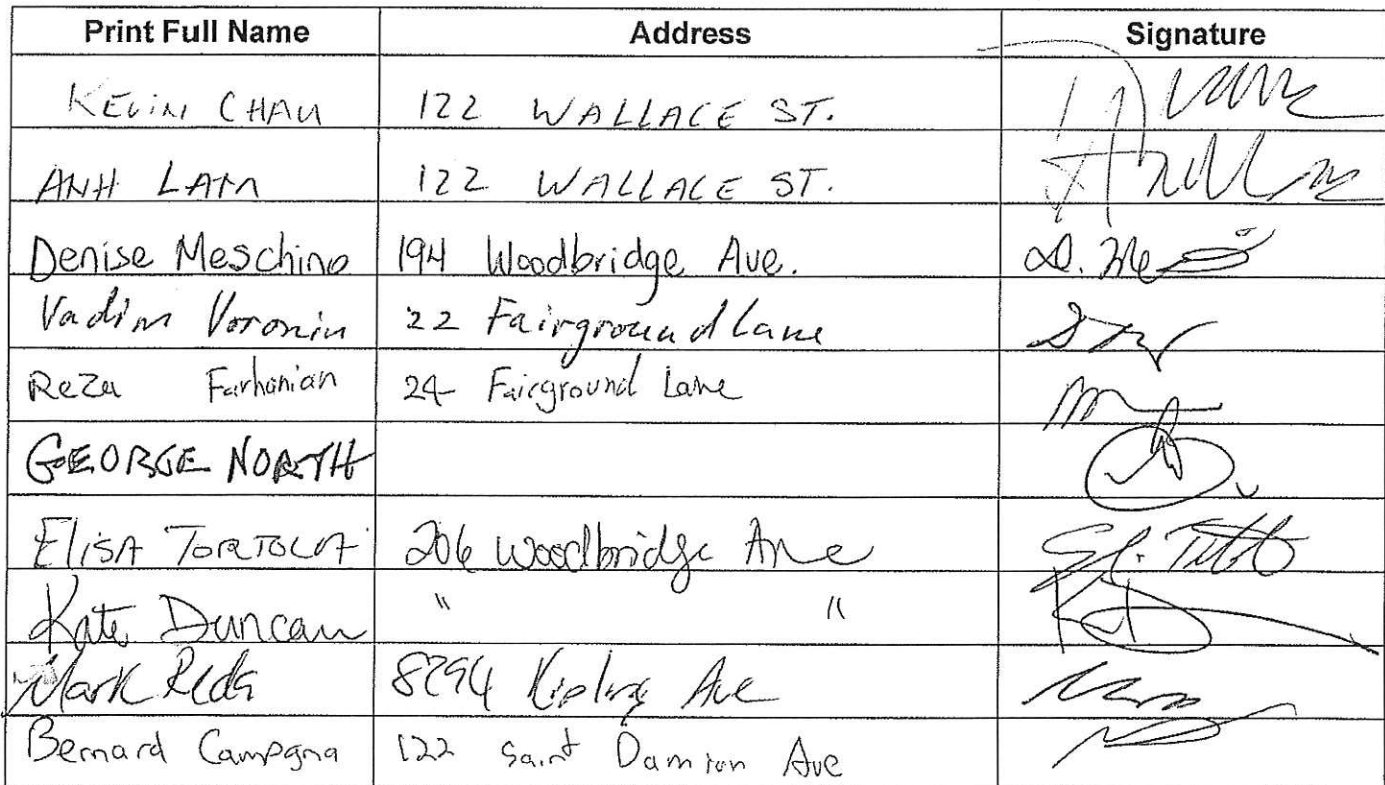 Print Full Name Address Signature
KEVIN CHAU 122 WALLACE ST.
ANH LAM 122 WALLACE ST.
Denise Meschino 194 Woodbridge Ave.
Vadim Voronin 22 Fairground Lane
Reza Farhanian 24 Fairground Lane
GEORGE NORTH
ELISA TORTOLA 206 Woodbridge Ave
Kate Duncan " "
Mark 8294 Kipling Ave
Bernard Campagna 122 Saint Damian Ave